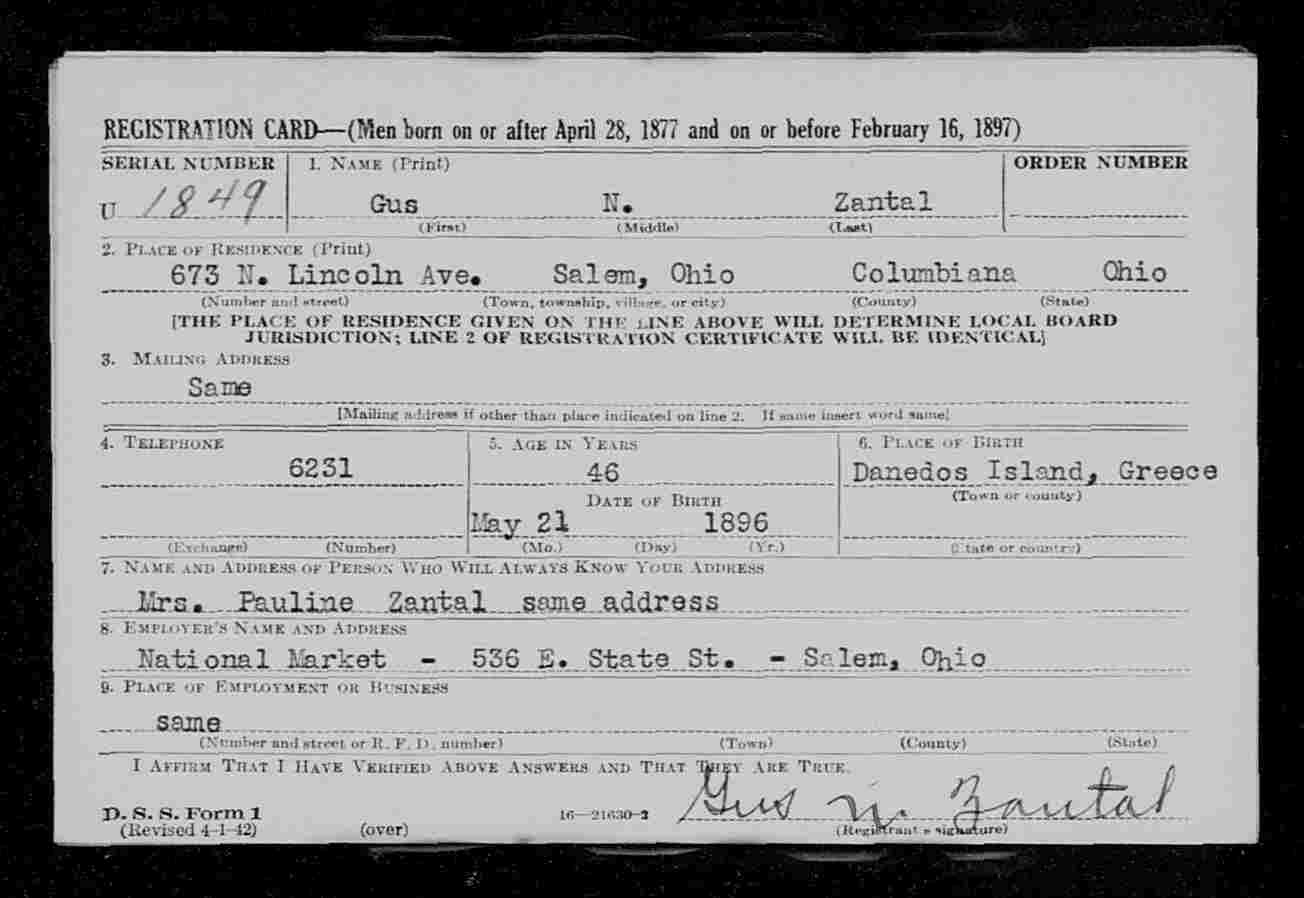 REGISTRATION CARD—(Men born on or after April 28, 1877 and on or before February 16, 1897)
SERIAL NUMBER 1. NAME (Print) ORDER NUMBER
U 1849 Gus N. Zantal
(First) (Middle) (Last)
2. PLACE OF RESIDENCE (Print)
673 N. Lincoln Ave. Salem, Ohio Columbiana Ohio
(Number and street) (Town, township, village, or city) (County) (State)
[THE PLACE OF RESIDENCE GIVEN ON THE LINE ABOVE WILL DETERMINE LOCAL BOARD
JURISDICTION; LINE 2 OF REGISTRATION CERTIFICATE WILL BE IDENTICAL]
3. MAILING ADDRESS
Same
[Mailing address if other than place indicated on line 2. If same insert word same]
4. TELEPHONE 5. AGE IN YEARS 6. PLACE OF BIRTH
6231 46 Danedos Island, Greece
DATE OF BIRTH (Town or county)
May 21 1896
(Exchange) (Number) (Mo.) (Day) (Yr.) (State or country)
7. NAME AND ADDRESS OF PERSON WHO WILL ALWAYS KNOW YOUR ADDRESS
Mrs. Pauline Zantal same address
8. EMPLOYER'S NAME AND ADDRESS
National Market - 536 E. State St. - Salem, Ohio
9. PLACE OF EMPLOYMENT OR BUSINESS
same
(Number and street or R. F. D. number) (Town) (County) (State)
I AFFIRM THAT I HAVE VERIFIED ABOVE ANSWERS AND THAT THEY ARE TRUE.
Gus N. Zantal
D. S. S. Form 1 16—21630-2
(Revised 4-1-42) (over) (Registrant's signature)